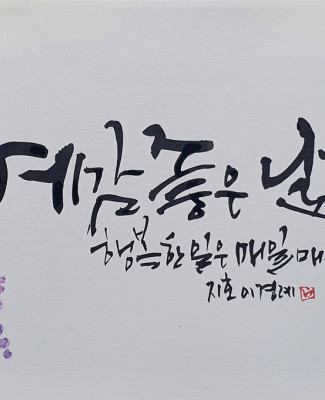 예감 좋은 날
행복한 일은 매일 매
지호 이경례